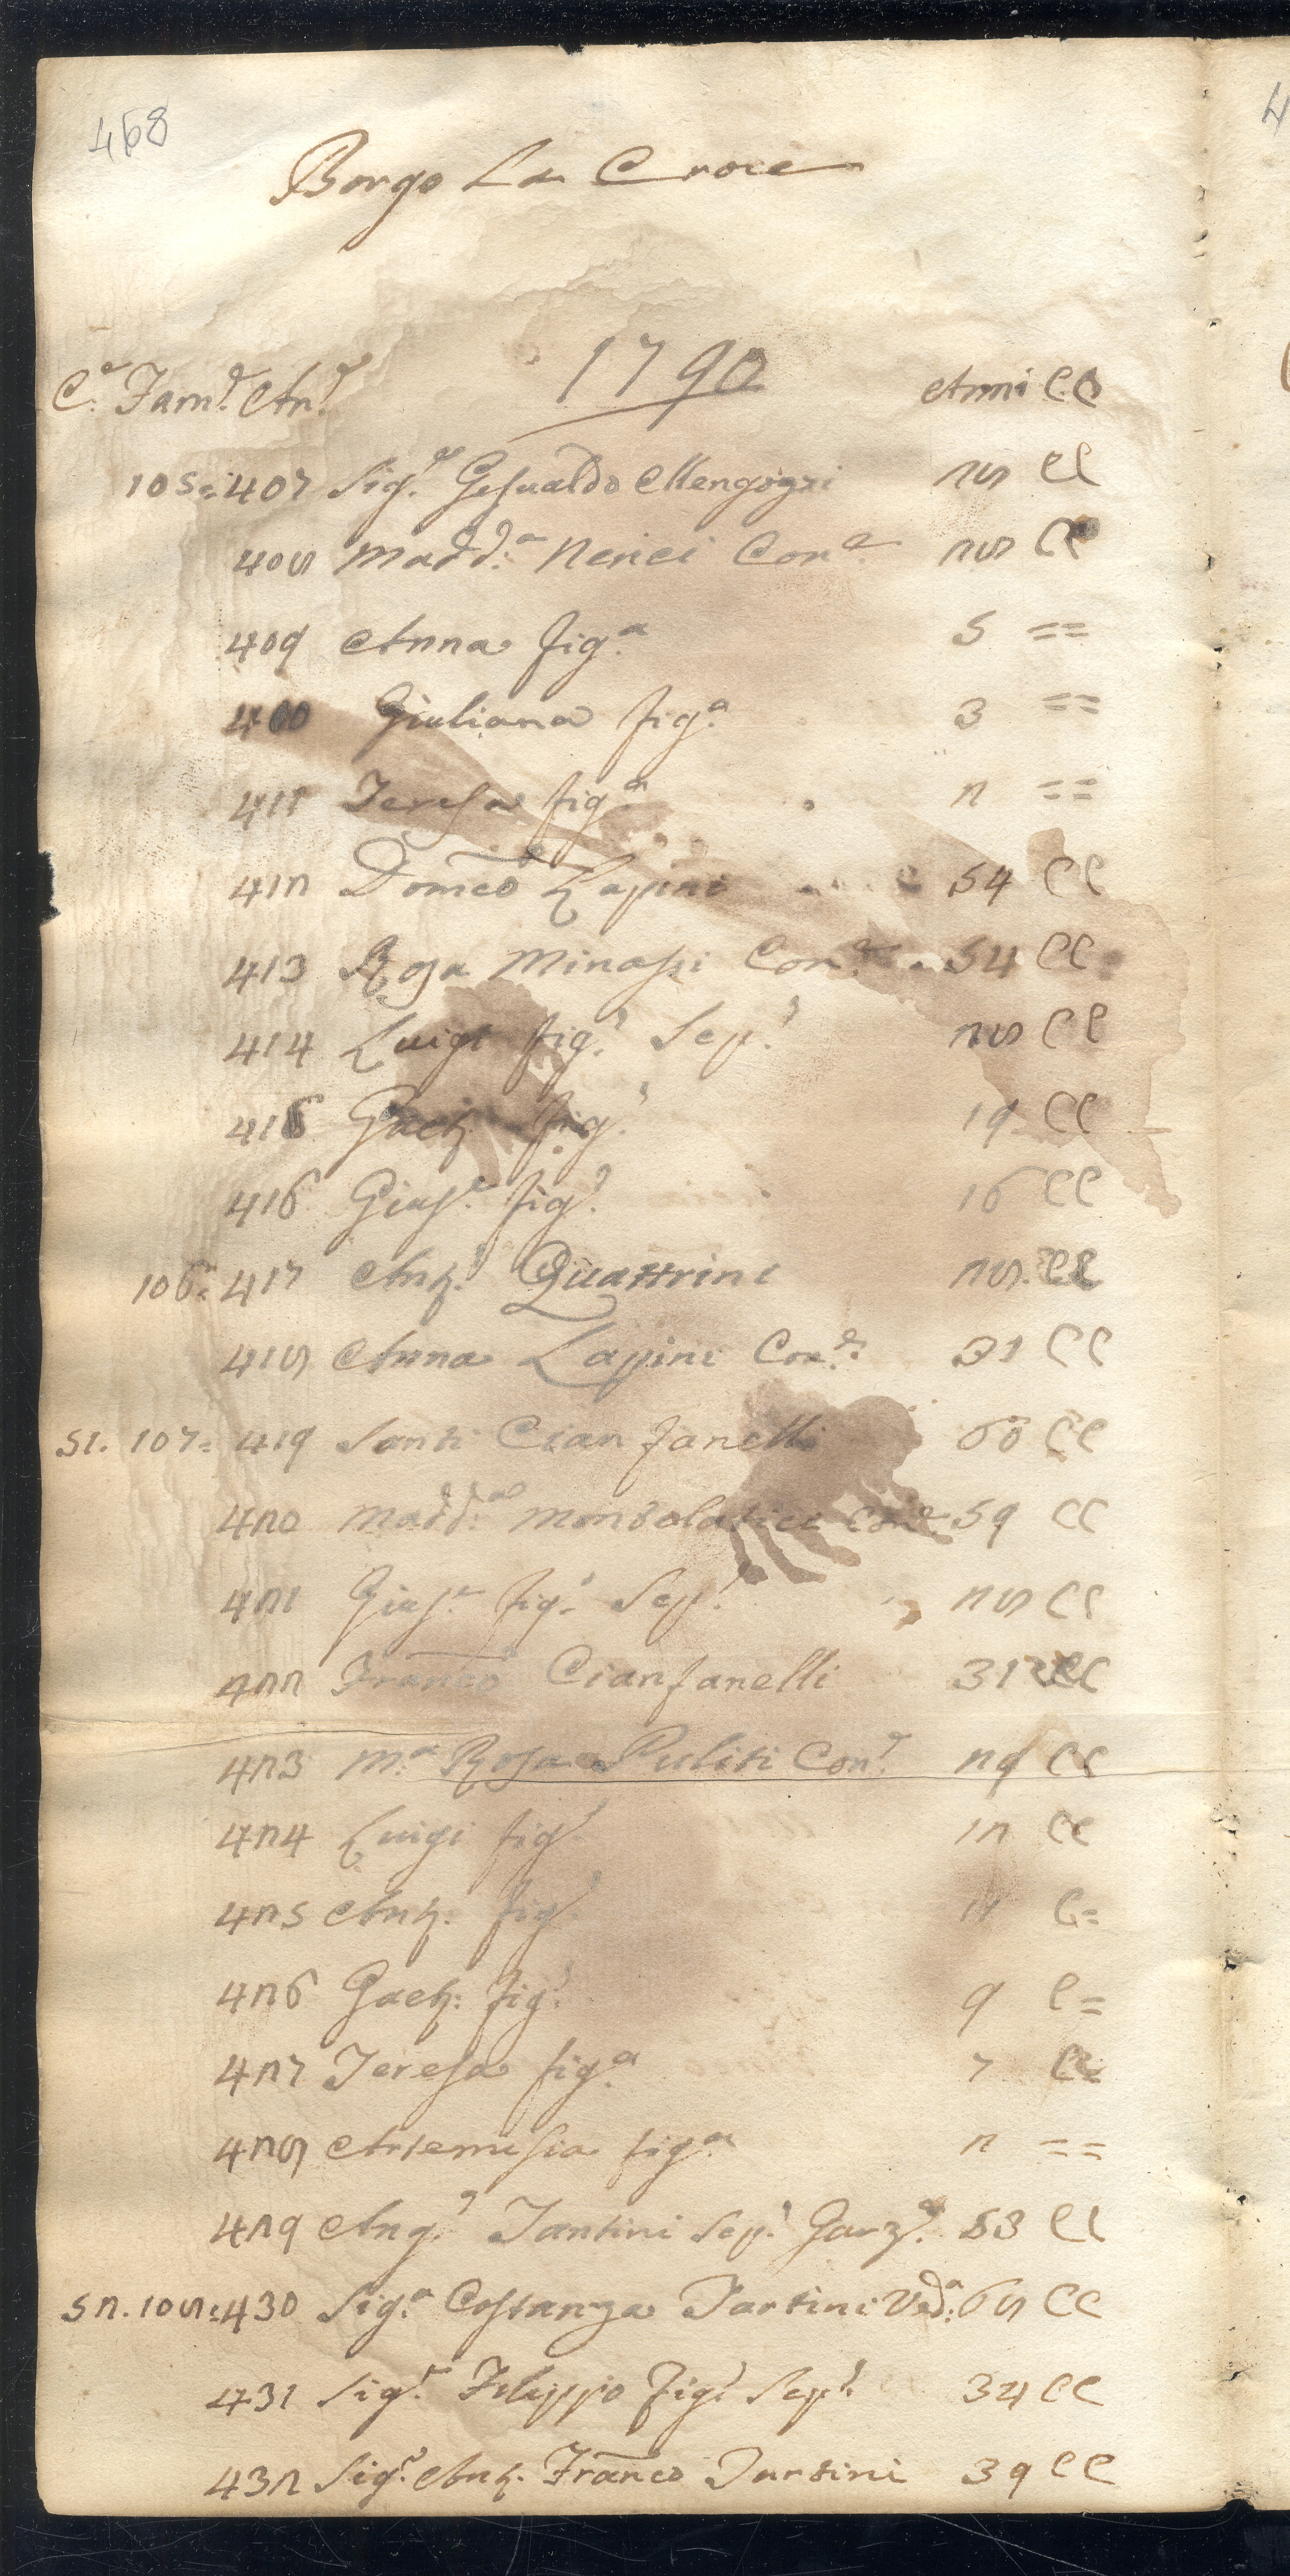 468
Borgo La Croce
1790
C.e Fam.e An.e Anni C.C
105= 407 Sig.r Gesualdo Mengozzi 28 CC
408 Madd:a Nenci Con.e 28 CC
409 Anna fig.a 5 ==
410 Giuliana fig.a 3 ==
411 Teresa fig.a 2 ==
412 Domco Lapini 54 CC
413 Rosa Minassi Con.e 54 CC
414 Luigi fig.o Sep.o 28 CC
415 Gaet. fig.o 19 CC
416 Gius.e fig.o 16 CC
106= 417 Ant.o Quattrini 28 CC
418 Anna Lapini Con.e 31 CC
51. 107= 419 Santi Cianfanelli 60 CC
420 Madd:a Con.e 59 CC
421 Gius.e fig.o Sep.o 28 CC
422 Franco Cianfanelli 31 CC
423 M.a Rosa Puliti Con.e 29 CC
424 Luigi fig.o 12 CC
425 Ant. fig.o 11 C=
426 Gaet: fig.o 9 C=
427 Teresa fig.a 7 C=
428 Artemisia fig.a 2 ==
429 Ang.o Tantini Sep.o Garz.e 53 CC
52. 108= 430 Sig.a Costanza Tartini Ved:a 68 CC
431 Sig.r Filippo fig.o Sep.o 34 CC
432 Sig.r Ant. Franco Tartini 39 CC